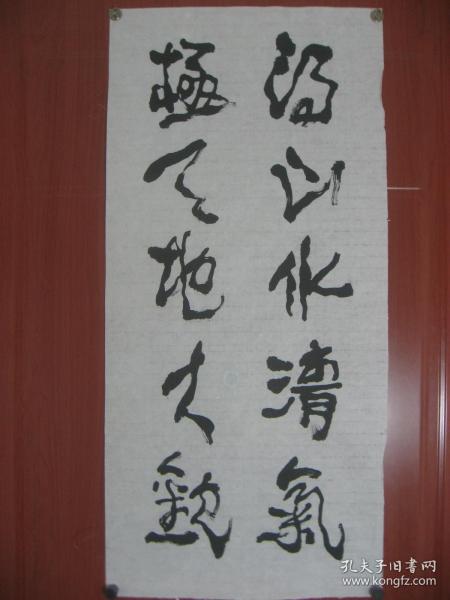 得山水清氣
極天地大觀
孔夫子旧书网
www.kongfz.com